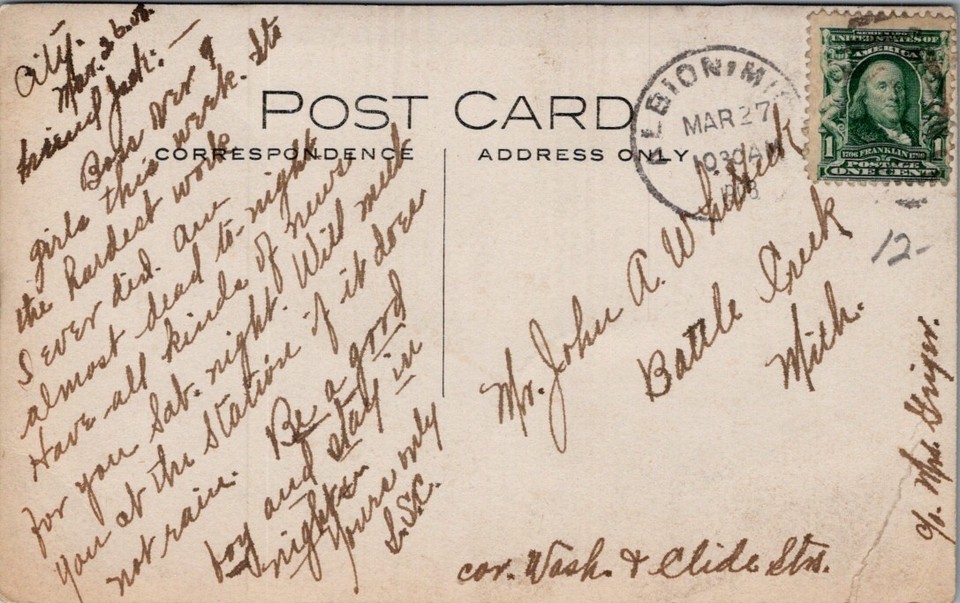 City.
Mar. 26. 08.
Friend Jack: —
Been over 9
girls this week. Its
the hardest work
I ever did. Am
almost dead to-night
Have all kinds of news
for you Sat. night. Will meet
you at the Station if it does
not rain. Be a good
boy and stay in
nights
Yours only
L.S.C.
POST CARD
CORRESPONDENCE
ADDRESS ONLY
ALBION, MICH
MAR 27
1030 AM
1908
SERIES 1902
UNITED STATES OF
AMERICA
1706 FRANKLIN 1790
1 POSTAGE 1
ONE CENT
12-
Mr. John A. W
Battle Creek
Mich.
c/o. Mrs.
cor. Wash. & Clide Sts.